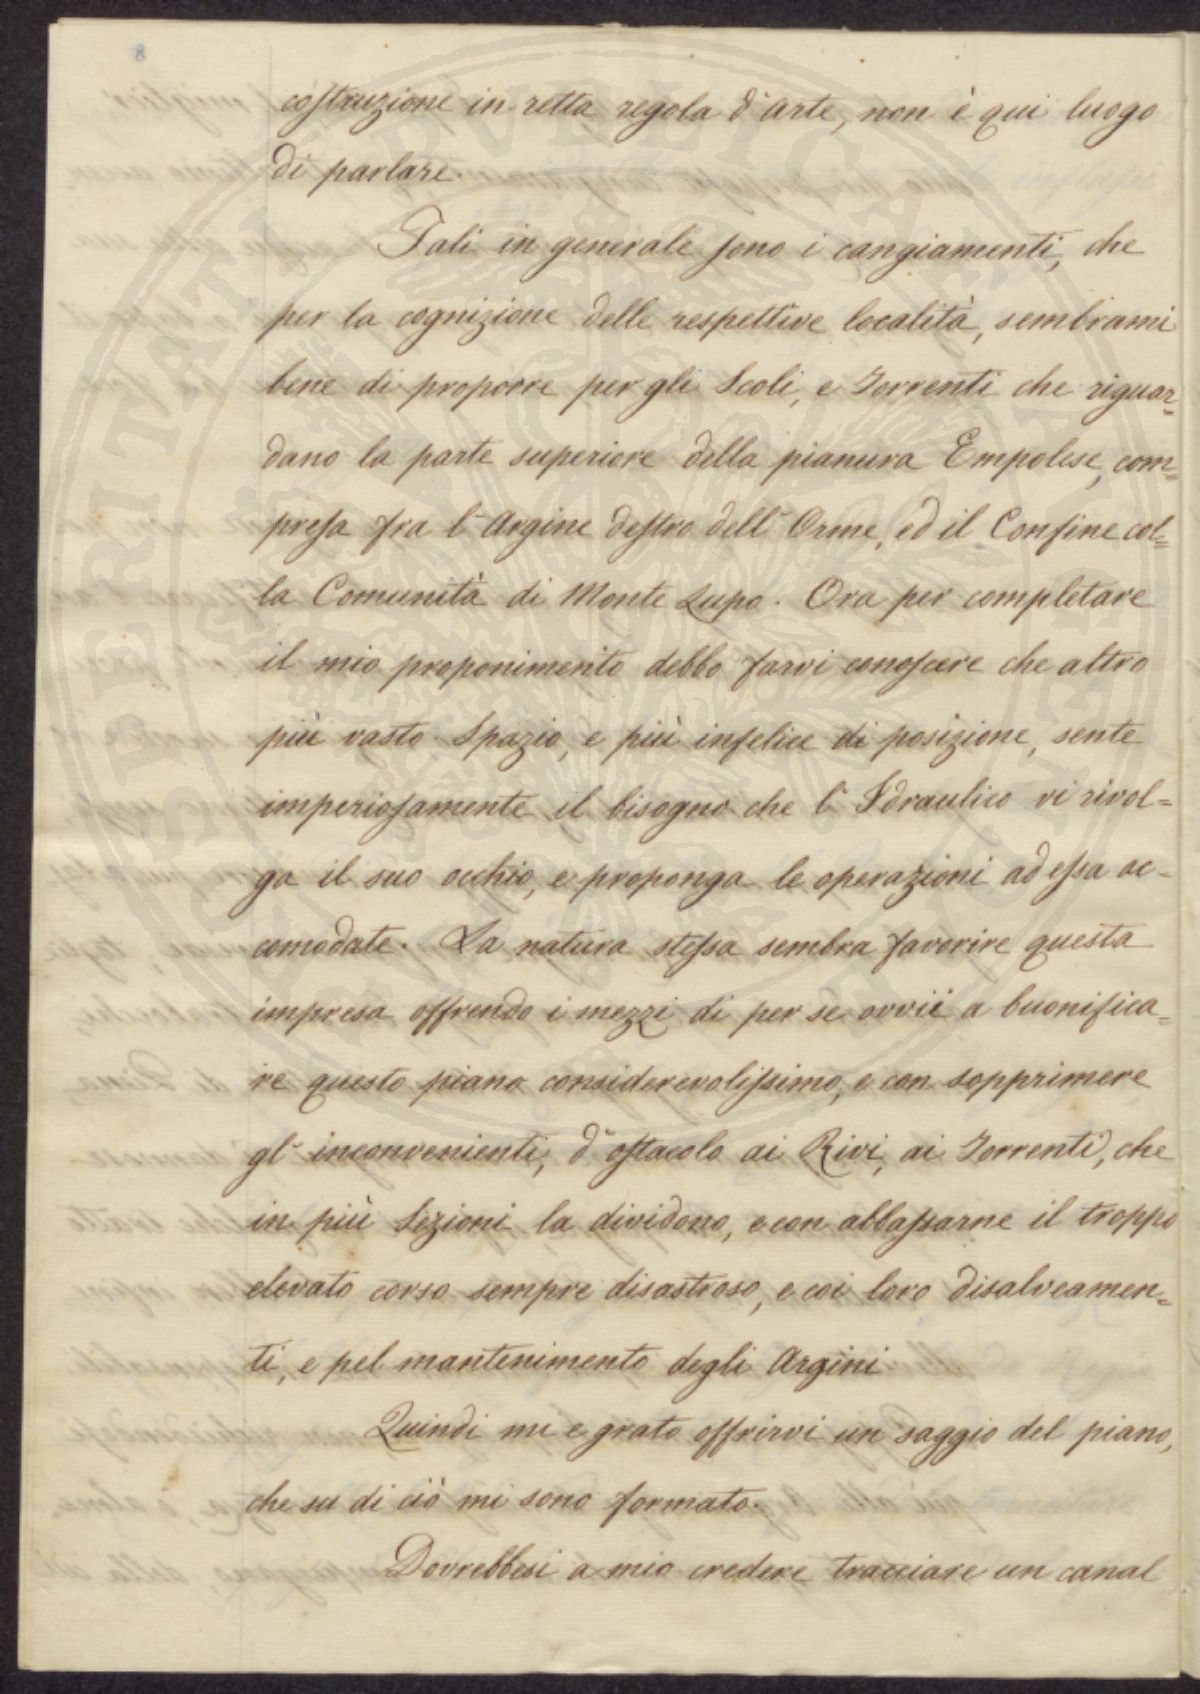 8
costruzione in retta regola d'arte, non è qui luogo
di parlare.
Tali in generale sono i cangiamenti, che
per la cognizione delle respettive località, sembrami
bene di proporre per gli Scoli, e Torrenti che riguar=
dano la parte superiore della pianura Empolese, com=
presa fra l'Argine destro dell'Orme, ed il Confine col=
la Comunità di Monte Lupo. Ora per completare
il mio proponimento debbo farvi conoscere che altro
più vasto Spazio, e più infelice di posizione, sente
imperiosamente il bisogno che l'Idraulico vi rivol=
ga il suo occhio, e proponga le operazioni ad essa ac=
comodate. La natura stessa sembra favorire questa
impresa offrendo i mezzi di per se ovvii a buonifica=
re questo piano considerevolissimo, e con sopprimere
gl'inconvenienti, d'ostacolo ai Rivi, ai Torrenti, che
in più Sezioni la dividono, e con abbassarne il troppo
elevato corso sempre disastroso, e coi loro disalveamen=
ti, e pel mantenimento degli Argini
Quindi mi e grato offrirvi un saggio del piano,
che su di ciò mi sono formato.
Dovrebbesi a mio credere tracciare un canal